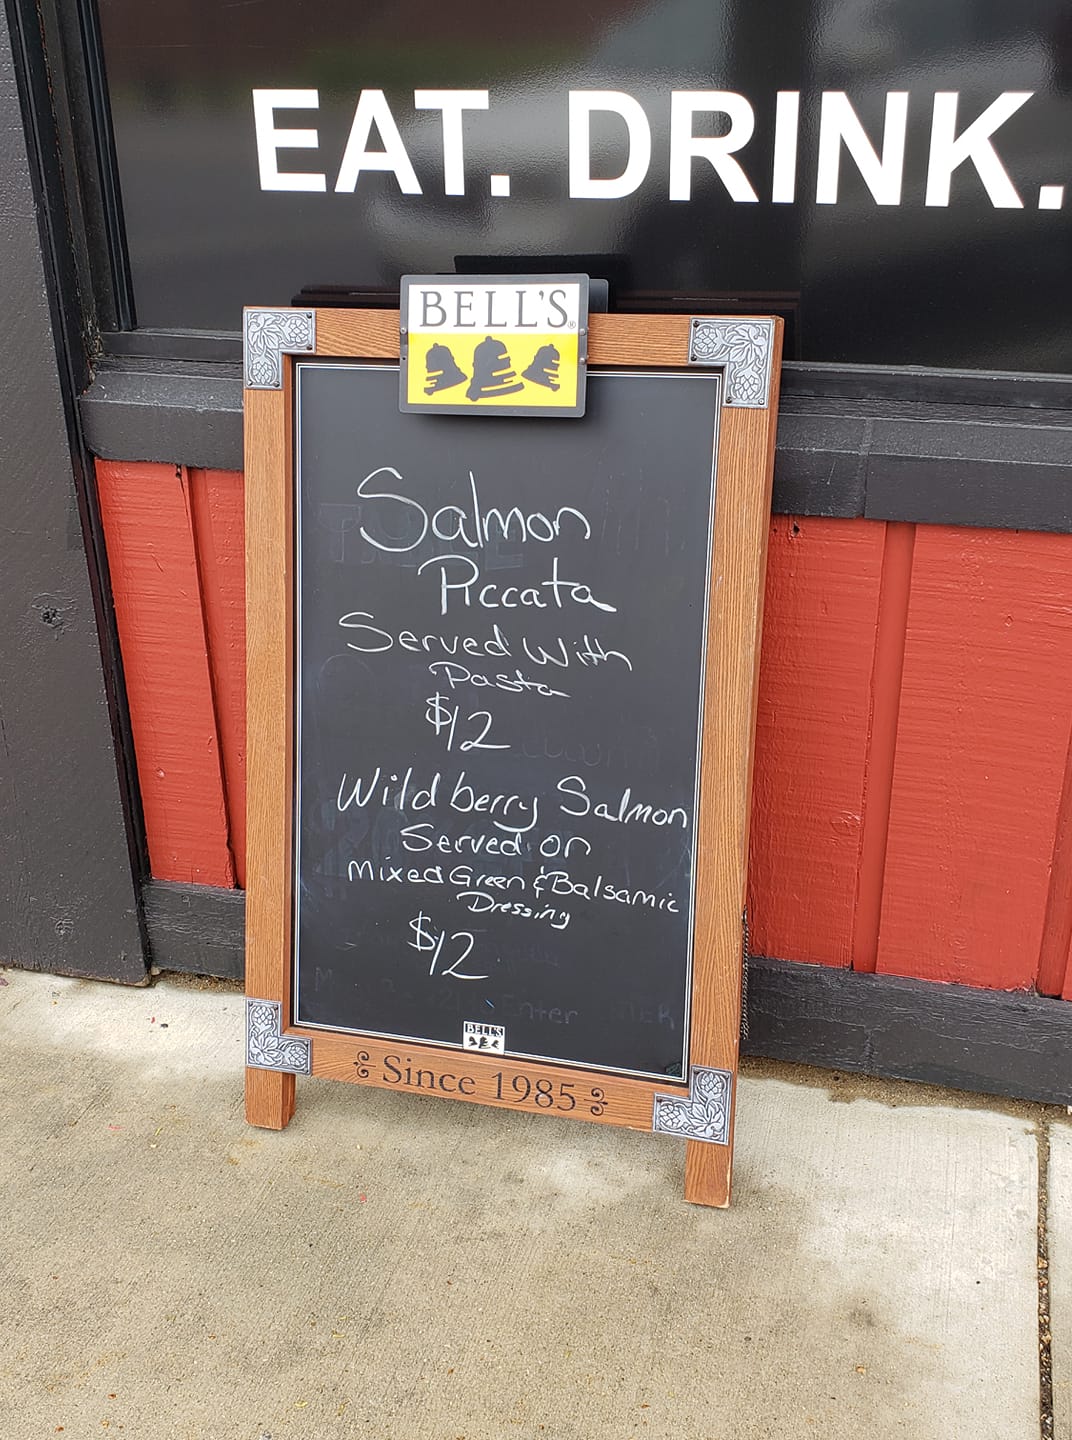 EAT. DRINK.
BELL'S®
Salmon
Piccata
Served With
Pasta
$12
Wildberry Salmon
Served on
Mixed Green & Balsamic
Dressing
$12
Enter
BELL'S
Since 1985